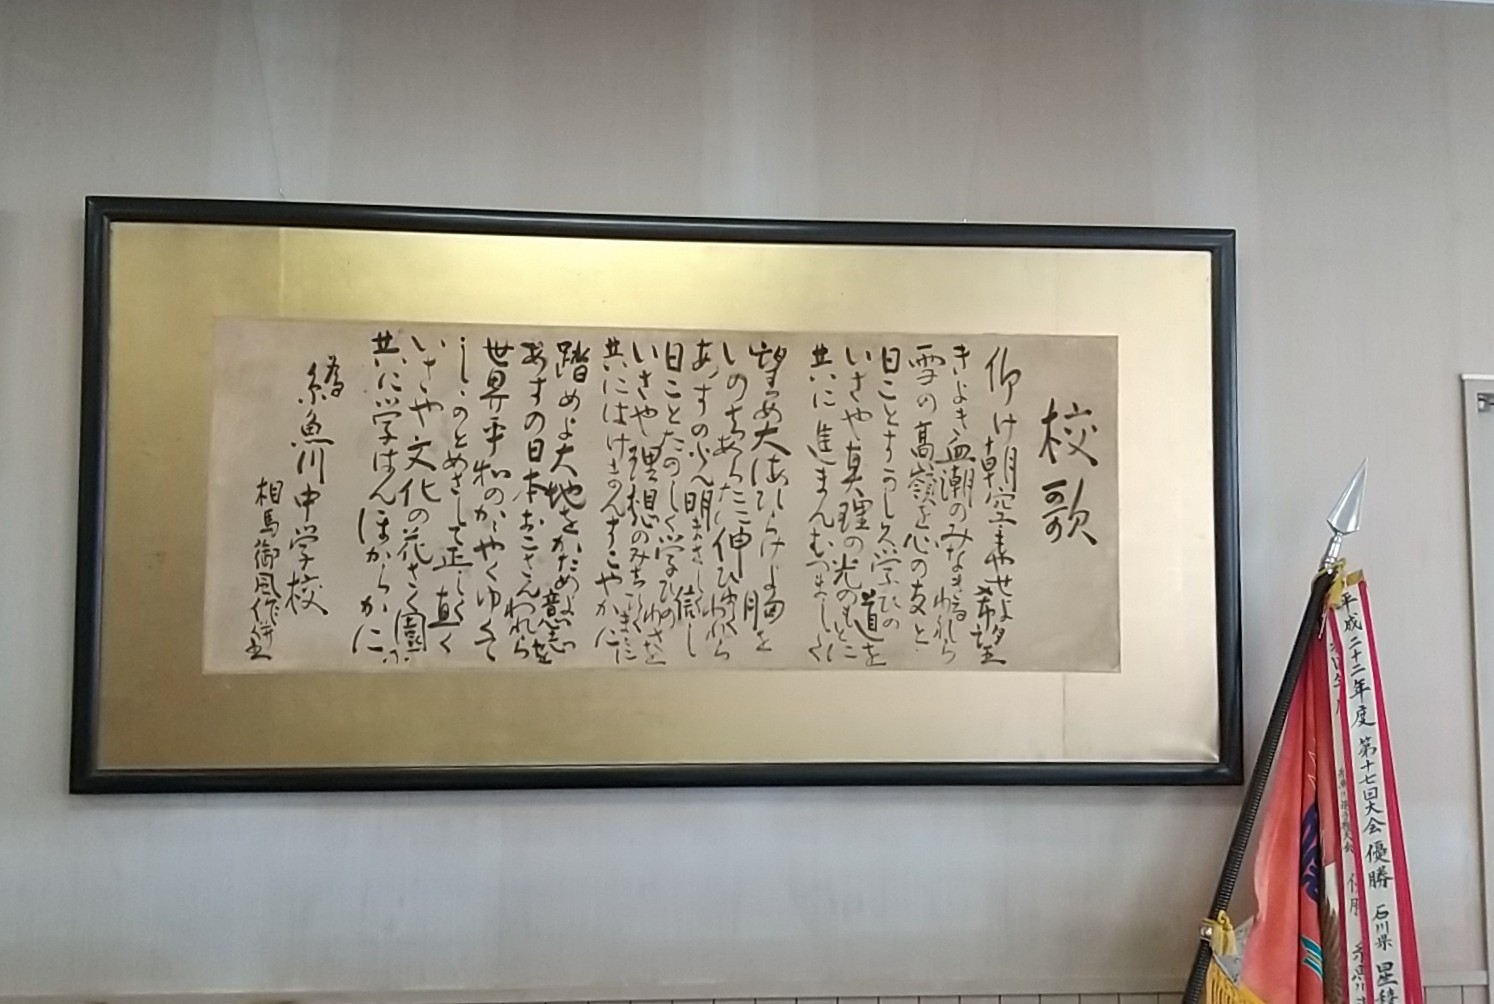 校歌
仰け朝空もやせよ希望
きよき血潮のみなきるわれら
雪の高嶺を心の友と
日こと学ひの道を
いさや真理の光のもとに
共に進まんむつましく
望め大海ひらけよ胸を
いのちあらたに伸ひゆくわれら
あすの光明まさしく信し
日ことたのしく学ひのわさを
いさや理想のみちひくまゝに
共にはけまんすこやかに
踏めよ大地をかためよ意志を
あすの日本おこさんわれら
世界平和のかゝやくゆくて
めさして正しく直く
いさや文化の花さく園に
共に学はんほからかに
為
糸魚川中学校
相馬御風作併書
平成二十二年度 第十七回大会 優勝 石川県 星稜